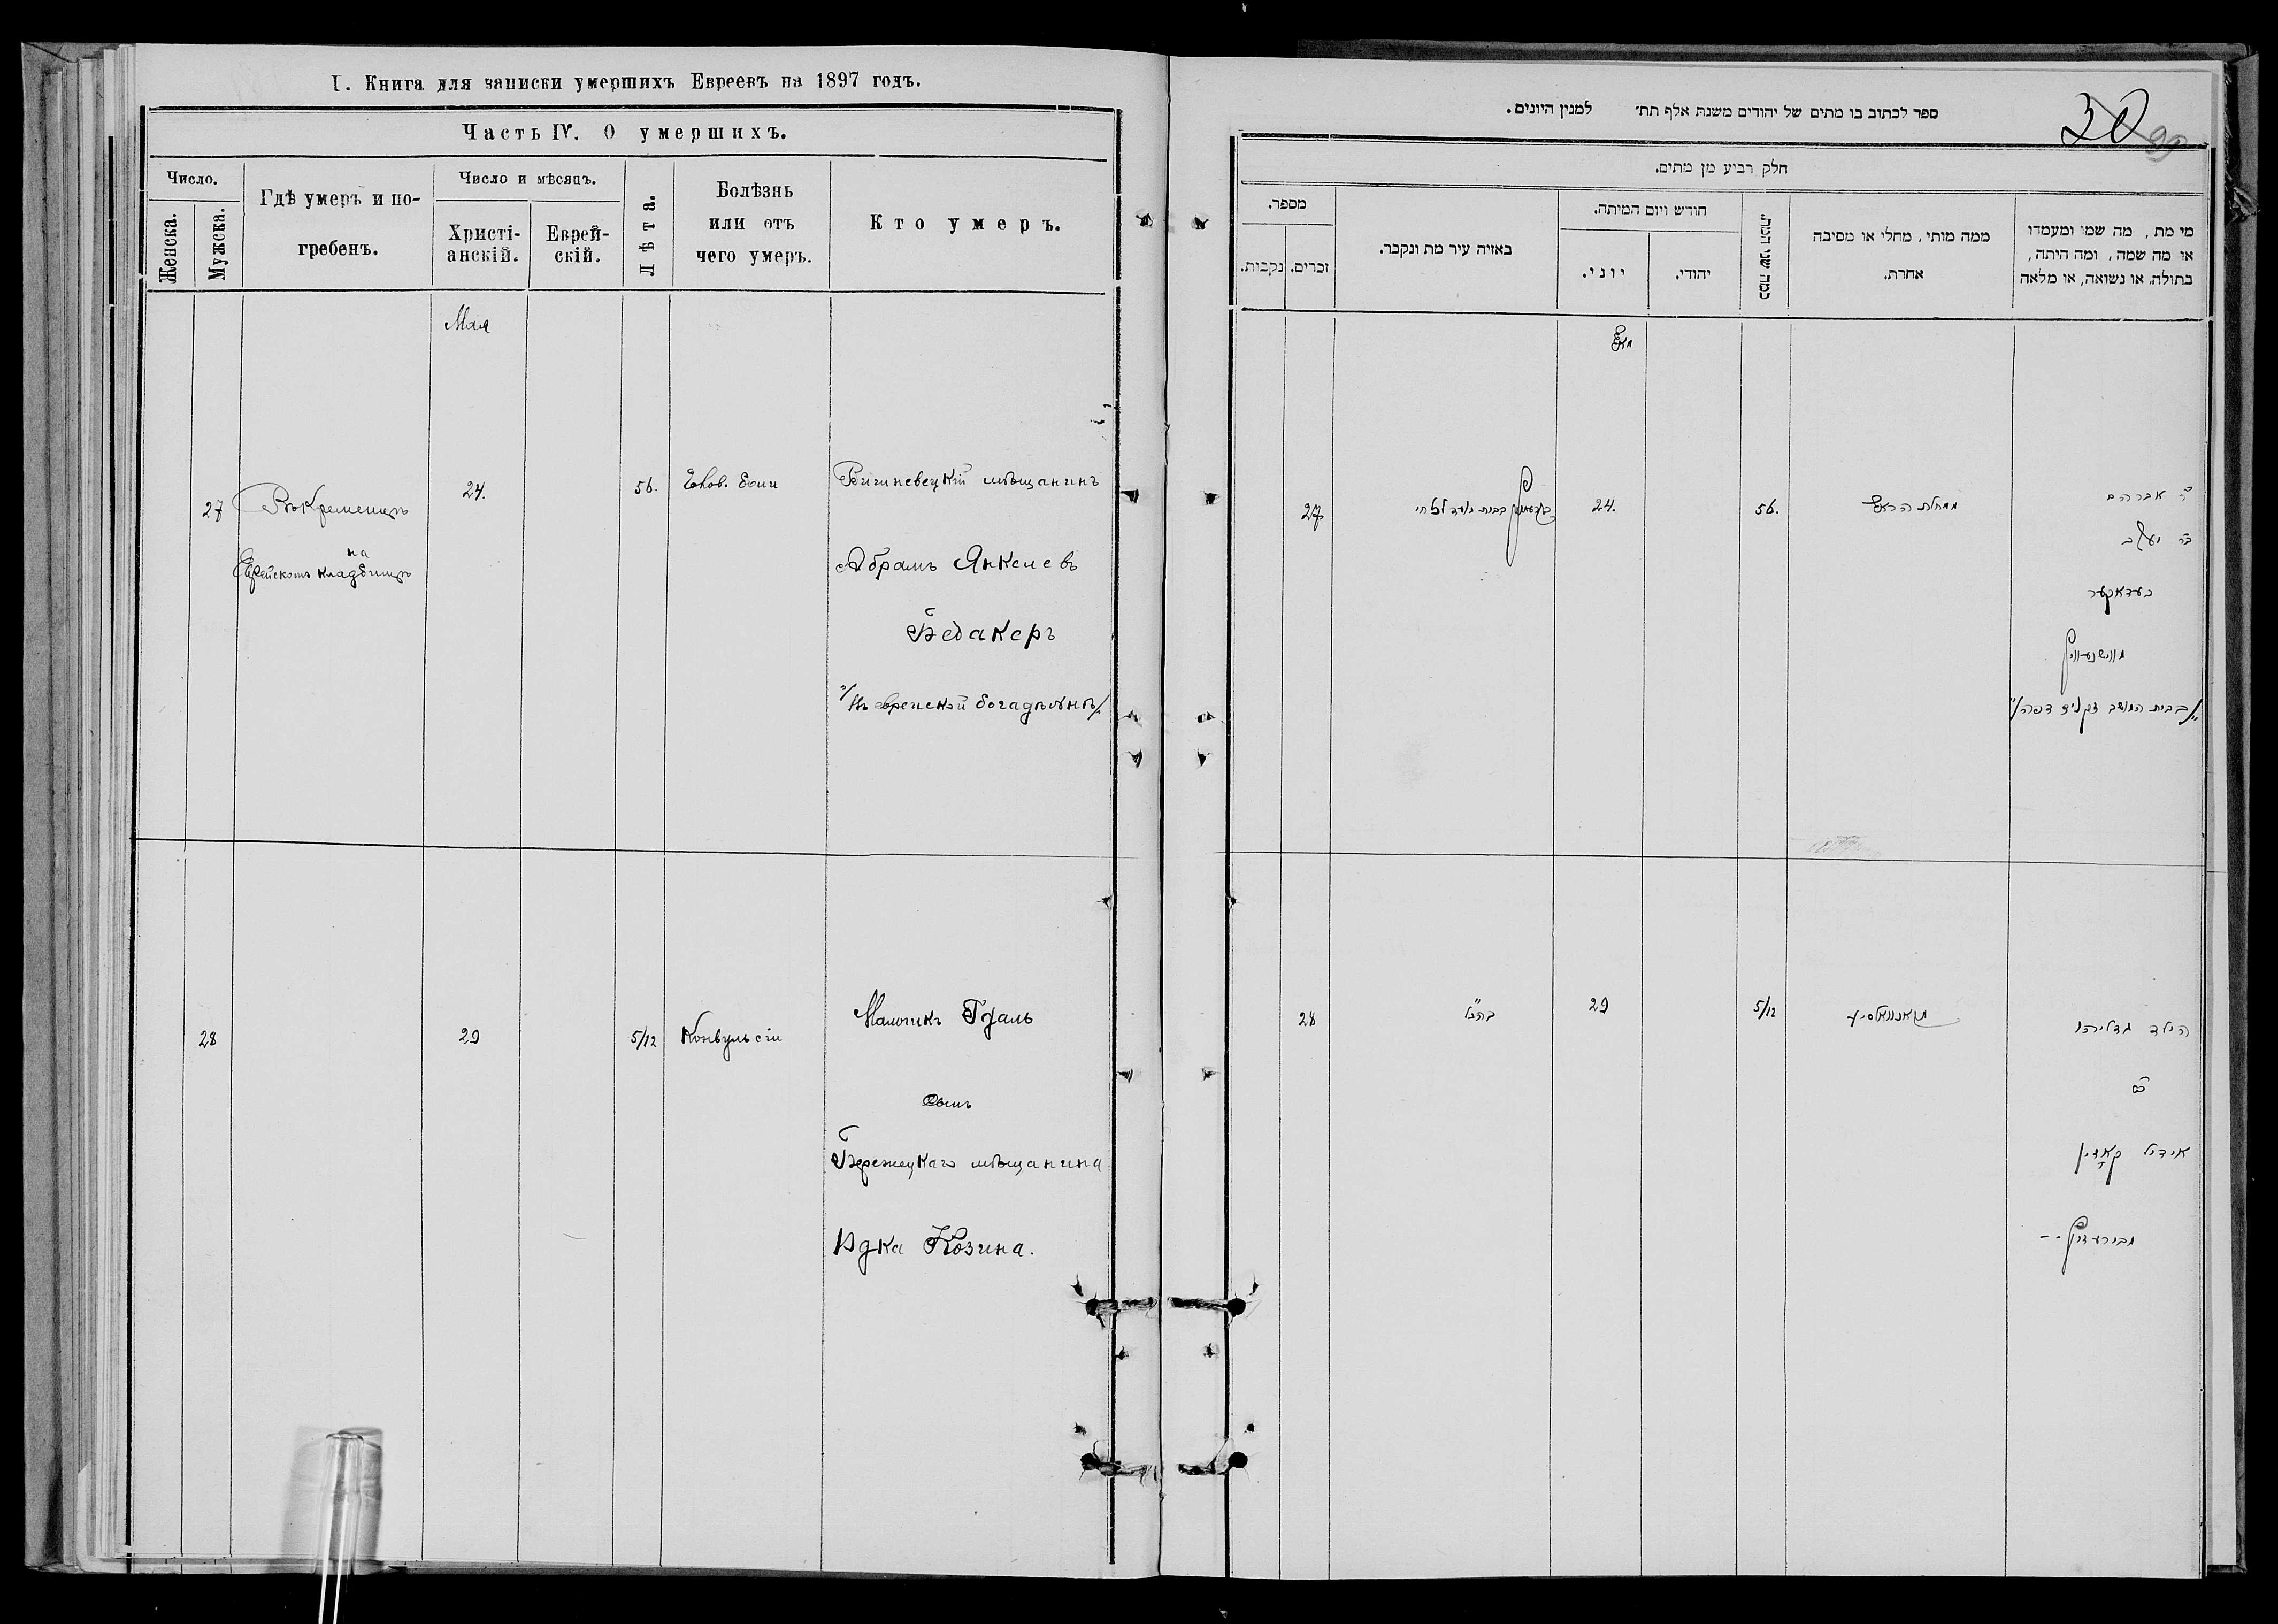 I. Книга для записки умершихъ Евреевъ на 1897 годъ.
Часть IV. О умершихъ.
Число.
Женска.
Мужска.
Гдѣ умеръ и по-
гребенъ.
Число и мѣсяцъ.
Христі-
анскій.
Еврей-
скій.
Лѣта.
Болѣзнь
или отъ
чего умеръ.
Кто умеръ.
Мая
27
Въ Кременцѣ
на
Еврейскомъ кладбищѣ
24.
56.
Голов. боли
Вишневецкій мѣщанинъ
Абрамъ Янкелевъ
Бедакеръ
"/въ еврейской богадѣльнѣ/"
28
29
5/12
Конвульсіи
Мальчикъ Гдаль
сынъ
Бережецкаго мѣщанина
Идка Козина.
ספר לכתוב בו מתים של יהודים משנת אלף תת׳ למנין היונים.
30
חלק רביע מן מתים.
מספר.
נקבות.
זכרים.
באזיה עיר מת ונקבר.
חודש ויום המיתה.
יוני.
יהודי.
כמה שני המת.
ממה מותי, מחלי או מסיבה
אחרת.
מי מת, מה שמו ומעמדו
או מה שמה, ומה היתה,
בתולה, או נשואה, או מלאה
מאי
27
בבית מועד לכל חי
24.
56.
ממחלת הראש
ר׳ אברהם
ב״ר יעקב
בעדאקער
מווישנעוויץ
"/בבית מושב זקנים דפה/"
28
בהנ״ל
29
5/12
קאנוואלסיע
הילד גדליהו
בן
אידיל קאזין